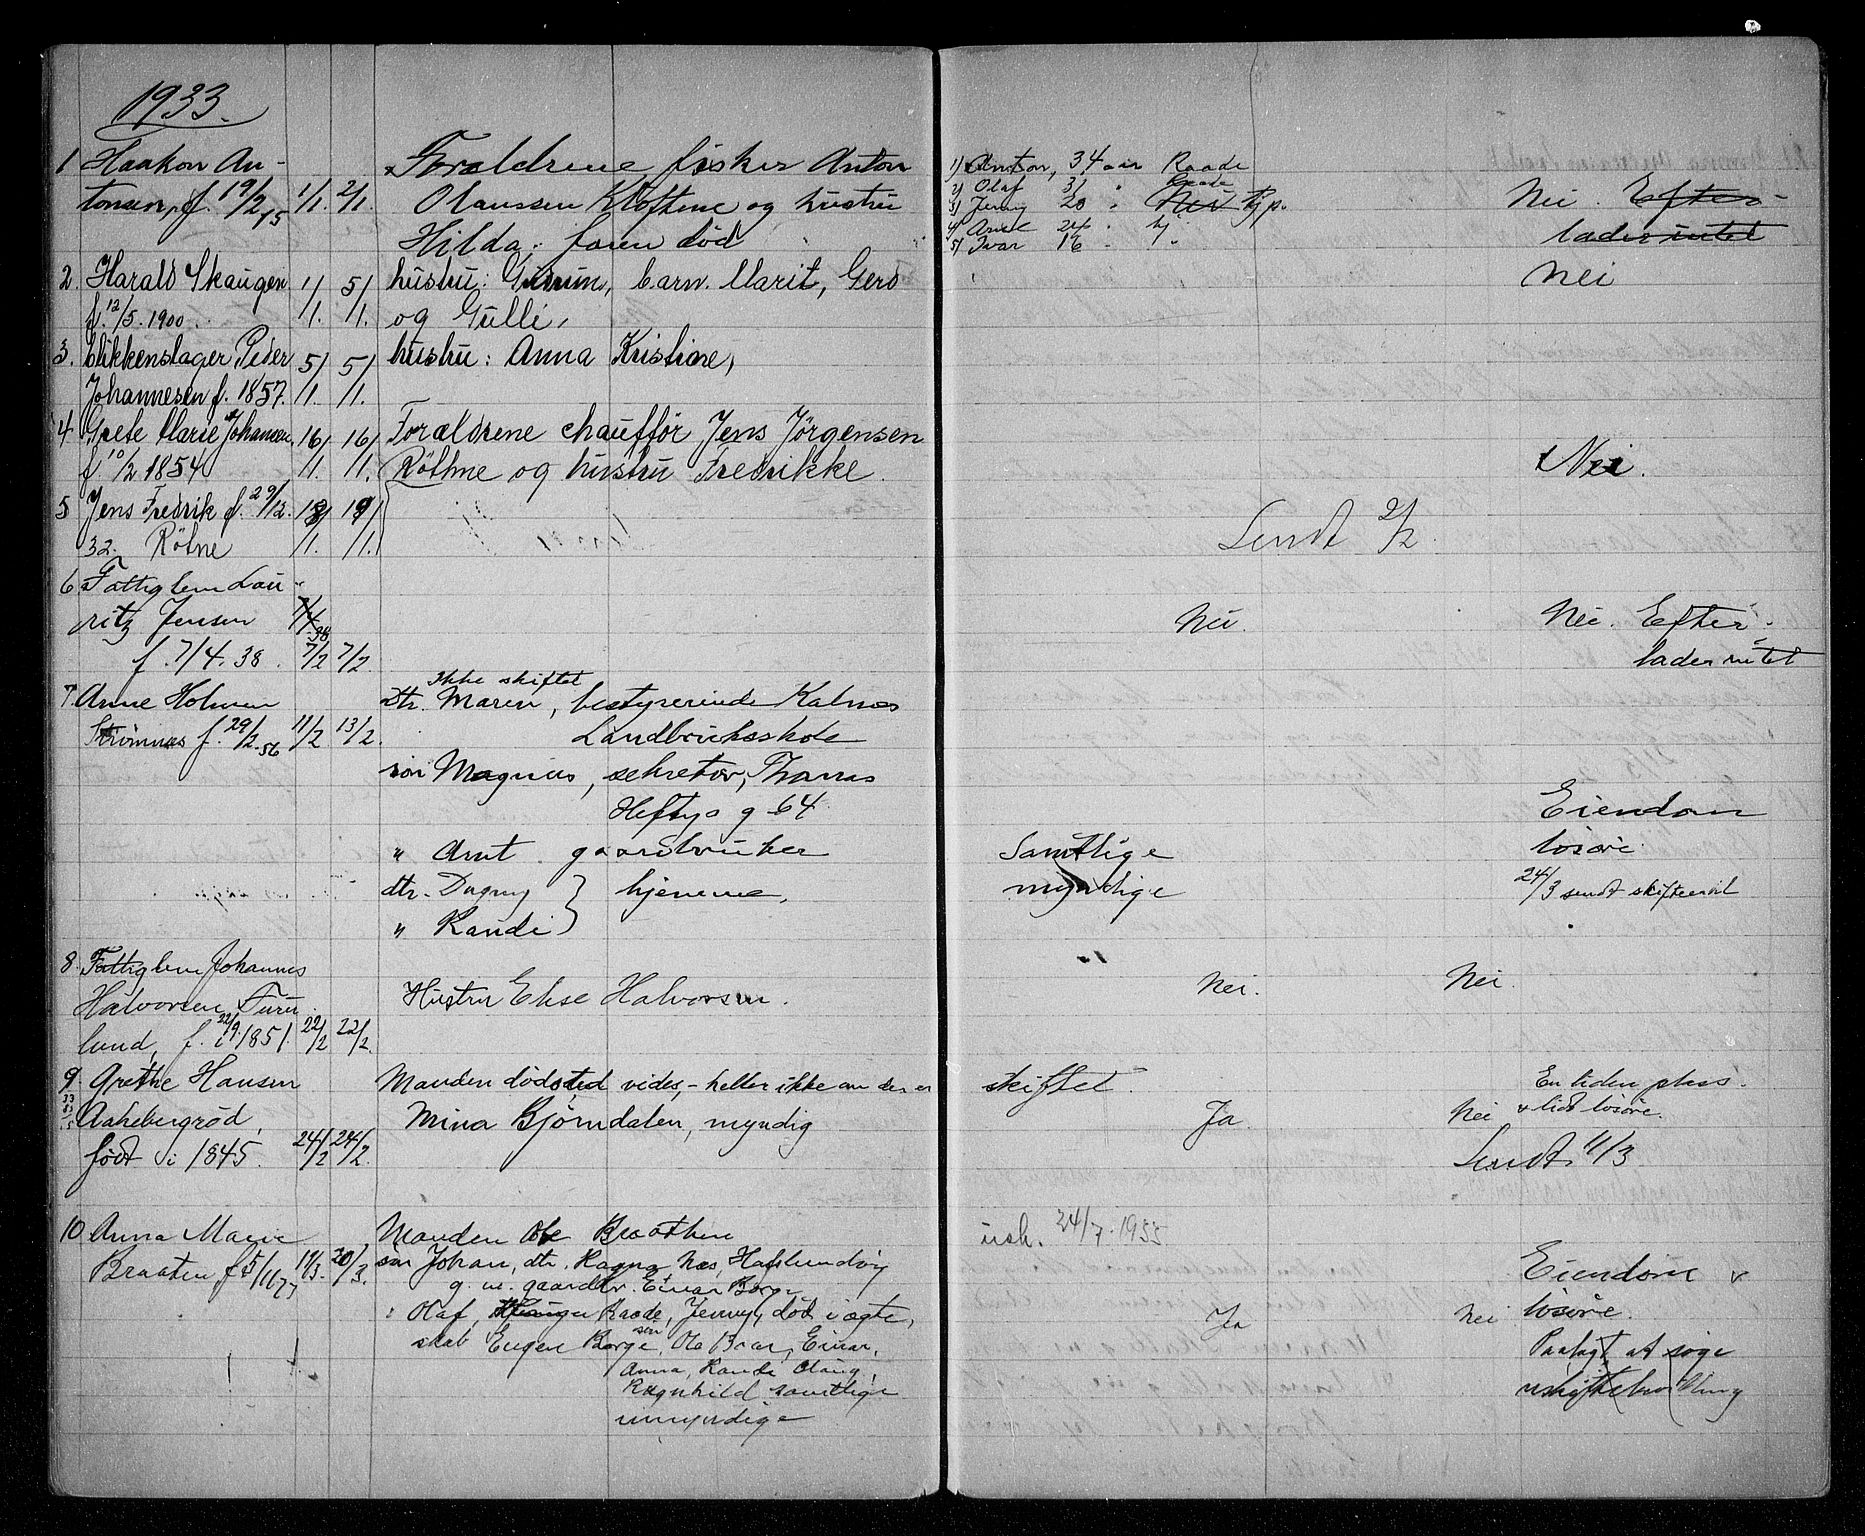 1933.
1 Haakon An-
tonsen, f. 19/2 15 1/1. 2/1.
Forældrene fisker Anton
Olaussen Kloftene og hustru
Hilda, faren død
1) Anton, 34 aar Raade
2) Olaf 31 " Raade
3) Jenny 20 " hjp.
4) Arne 24 " hj
5) Ivar 16 " "
Nei. Efter-
lader intet
2. Harald Skaugen 1/1. 5/1.
f. 12/5. 1900
hustru: Gudrun, barn. Marit, Gerd
og Gulli,
Nei
3. blikkenslager Peder 5/1. 5/1.
Johannesen f. 1857.
hustru: Anna Kristine,
4 Grete Marie Johansen, 16/1. 16/1.
f. 10/2 1854
Forældrene chauffør Jens Jörgensen
Röthne og hustru Fredrikke.
Nei.
5 Jens Fredrik f. 29/12. 18/1. 19/1.
32. Rötne
Sendt 2/2.
6 Fattiglem Lau-
ritz Jensen
f. 7/4. 38. 7/2 7/2.
Nei.
Nei. Efter-
lader intet
7. Anne Holmen
Strömnes f. 29/2. 56 11/2 13/2.
Ikke skiftet
Dtr. Maren, bestyrerinde Kalnes
Landbruksskole
sön Magnus, sekretær, Thomas
Heftys g 64
" Arnt. gaardbruker
dtr. Dagny } hjemme,
" Randi }
Samtlige
myndige
Eiendom
lösöre.
24/3 sendt skifteret
8 Fattiglem Johannes
Halvorsen Furu
lund, f. 22/9. 1851. 22/2 22/2.
Hustru Elise Halvorsen.
Nei.
Nei.
9. Grethe Hansen
Aakebergröd,
født i 1845. 24/2 24/2.
Manden dödsted vides,- heller ikke om der er skiftet.
Mina Björndalen, myndig
Ja.
Nei
En liden plass.
& lidt lösöre.
Sendt 11/3
10 Anna Marie
Braaten f. 5/11 77 19/3. 20/3.
Manden Ole Braathen
sön Johan, dtr. Ragna Næs, Hafslundvøy
g. m. gaardbr. Einar Borge
" Olaf, Raade, Jenny, död i ægte-
skab Eugen Borge, sön Ole Boar, Einar,
Anna, Randi Olaug,
Ragnhild samtlige
umyndige
usk. 24/7. 1933
Ja
Nei
Eiendom &
lösöre.
Paalagt at söge
uskiftebevilling